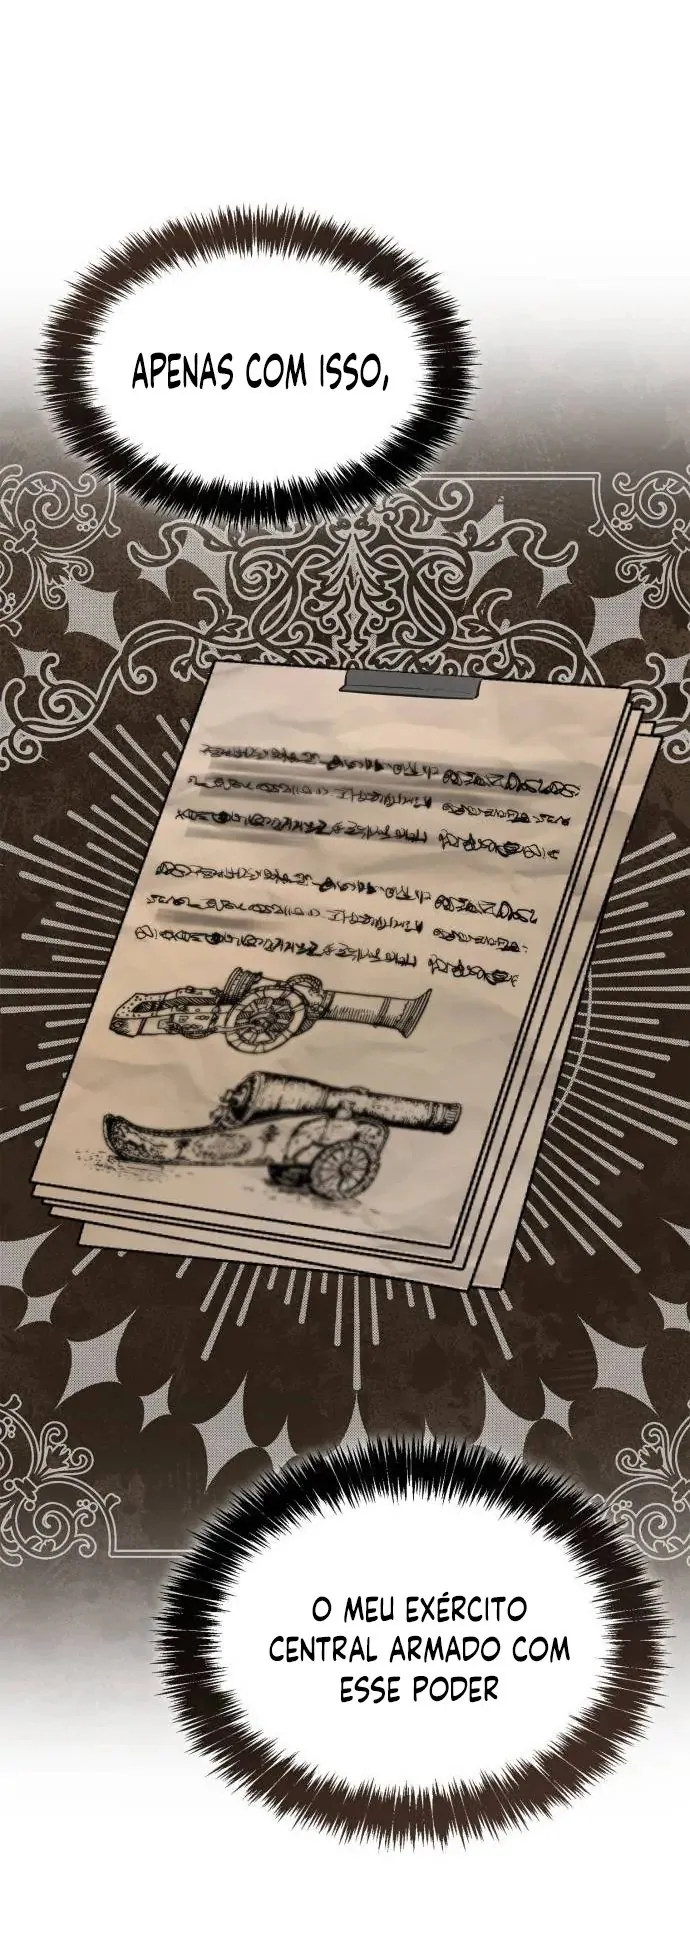 APENAS COM ISSO,
O MEU EXÉRCITO
CENTRAL ARMADO COM
ESSE PODER